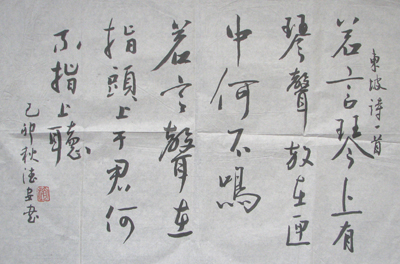 東坡詩一首
若言琴上有
琴聲放在匣
中何不鳴
若言聲在
指頭上于君何
不指上聽
己卯秋書